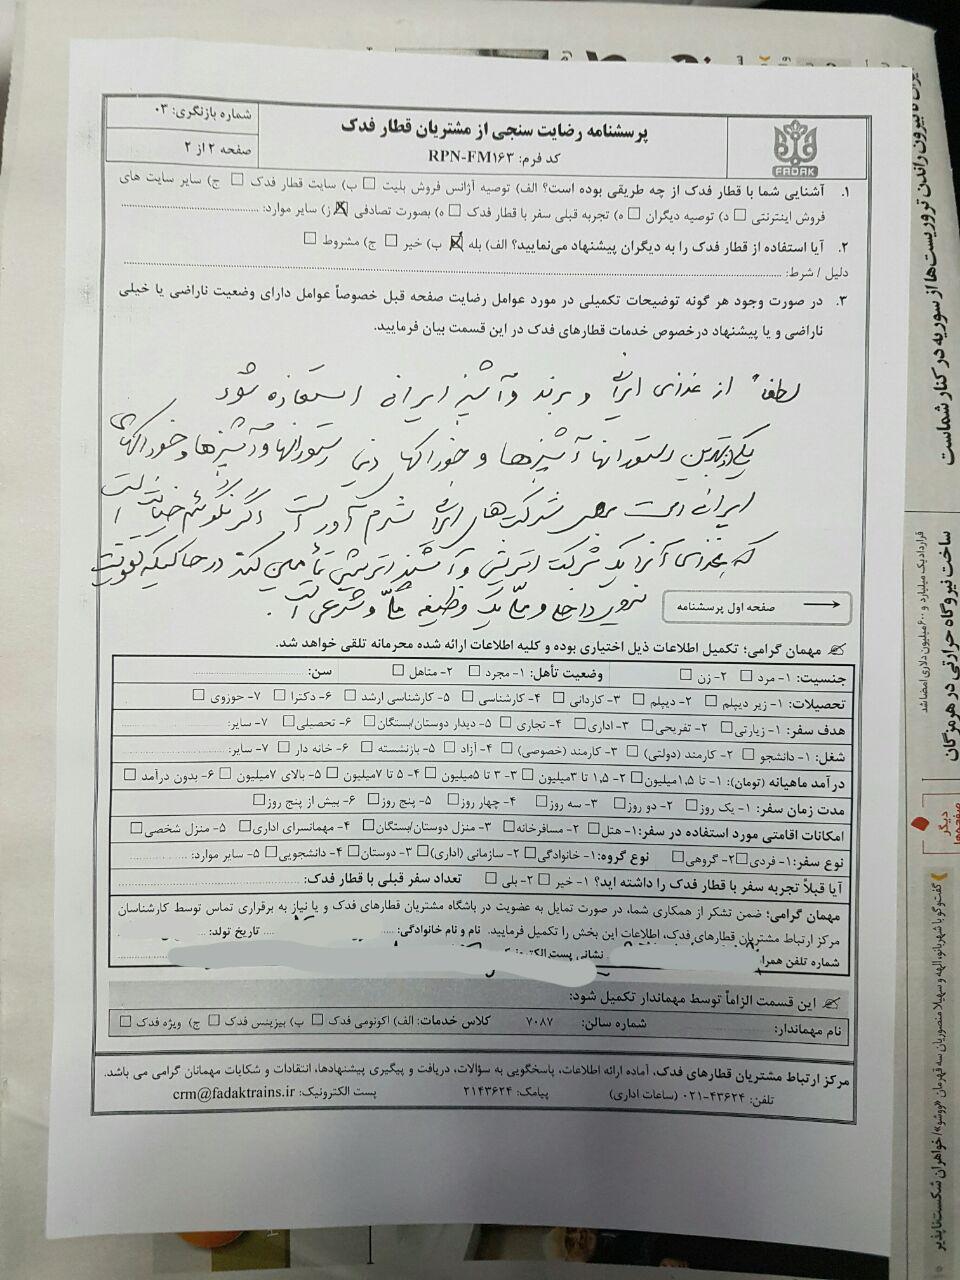 شماره بازنگری: ۰۳
پرسشنامه رضایت سنجی از مشتریان قطار فدک
صفحه ۲ از ۲
کد فرم: RPN-FM۱۶۳
FADAK
۱. آشنایی شما با قطار فدک از چه طریقی بوده است؟ الف) توصیه آژانس فروش بلیت □ ب) سایت قطار فدک □ ج) سایر سایت های
فروش اینترنتی □ د) توصیه دیگران □ ه) تجربه قبلی سفر با قطار فدک □ ه) بصورت تصادفی ☒ ز) سایر موارد:
۲. آیا استفاده از قطار فدک را به دیگران پیشنهاد می‌نمایید؟ الف) بله ☒ ب) خیر □ ج) مشروط □
دلیل / شرط:
۳. در صورت وجود هر گونه توضیحات تکمیلی در مورد عوامل رضایت صفحه قبل خصوصاً عوامل دارای وضعیت ناراضی یا خیلی
ناراضی و یا پیشنهاد درخصوص خدمات قطارهای فدک در این قسمت بیان فرمایید.
لطفاً از غذای ایرانی و برند و آشپز ایرانی استفاده شود
یکی از بهترین رستورانها آشپزها و خوراکهای دنیا رستورانها و آشپزها و خوراکهای
ایرانی است برای شرکت‌های ایرانی شرم آور است اگر نگوئیم خیانت است
که غذای آنرا یک شرکت اتریشی و آشپز اتریشی تأمین کند در حالیکه تقویت
نیروی داخلی و ملی یک وظیفه ملی و شرعی است.
صفحه اول پرسشنامه
مهمان گرامی؛ تکمیل اطلاعات ذیل اختیاری بوده و کلیه اطلاعات ارائه شده محرمانه تلقی خواهد شد.
جنسیت: ۱- مرد □ ۲- زن □ وضعیت تأهل: ۱- مجرد □ ۲- متاهل □ سن:
تحصیلات: ۱- زیر دیپلم □ ۲- دیپلم □ ۳- کاردانی □ ۴- کارشناسی □ ۵- کارشناسی ارشد □ ۶- دکترا □ ۷- حوزوی □
هدف سفر: ۱- زیارتی □ ۲- تفریحی □ ۳- اداری □ ۴- تجاری □ ۵- دیدار دوستان/بستگان □ ۶- تحصیلی □ ۷- سایر:
شغل: ۱- دانشجو □ ۲- کارمند (دولتی) □ ۳- کارمند (خصوصی) □ ۴- آزاد □ ۵- بازنشسته □ ۶- خانه دار □ ۷- سایر:
درآمد ماهیانه (تومان): ۱- تا ۱,۵میلیون □ ۲- ۱,۵ تا ۳میلیون □ ۳- ۳ تا ۵میلیون □ ۴- ۵ تا ۷میلیون □ ۵- بالای ۷میلیون □ ۶- بدون درآمد □
مدت زمان سفر: ۱- یک روز □ ۲- دو روز □ ۳- سه روز □ ۴- چهار روز □ ۵- پنج روز □ ۶- بیش از پنج روز □
امکانات اقامتی مورد استفاده در سفر: ۱- هتل □ ۲- مسافرخانه □ ۳- منزل دوستان/بستگان □ ۴- مهمانسرای اداری □ ۵- منزل شخصی □
نوع سفر: ۱- فردی □ ۲- گروهی □ نوع گروه: ۱- خانوادگی □ ۲- سازمانی (اداری) □ ۳- دوستان □ ۴- دانشجویی □ ۵- سایر موارد:
آیا قبلاً تجربه سفر با قطار فدک را داشته اید؟ ۱- خیر □ ۲- بلی □ تعداد سفر قبلی با قطار فدک:
مهمان گرامی؛ ضمن تشکر از همکاری شما، در صورت تمایل به عضویت در باشگاه مشتریان قطارهای فدک و یا نیاز به برقراری تماس توسط کارشناسان
مرکز ارتباط مشتریان قطارهای فدک، اطلاعات این بخش را تکمیل فرمایید. نام و نام خانوادگی: تاریخ تولد:
شماره تلفن همراه نشانی پست الکترونیک
این قسمت الزاماً توسط مهماندار تکمیل شود:
نام مهماندار: شماره سالن: ۷۰۸۷ کلاس خدمات: الف) اکونومی فدک □ ب) بیزینس فدک □ ج) ویژه فدک □
مرکز ارتباط مشتریان قطارهای فدک، آماده ارائه اطلاعات، پاسخگویی به سؤالات، دریافت و پیگیری پیشنهادها، انتقادات و شکایات مهمانان گرامی می باشد.
تلفن: ۴۳۶۲۴-۰۲۱ (ساعات اداری) پیامک: ۲۱۴۳۶۲۴ پست الکترونیک: crm@fadaktrains.ir
بیرون راندن تروریست‌ها از سوریه در کنار شماست
قرارداد یک میلیارد و ۶۰۰ میلیون دلاری امضا شد
ساخت نیروگاه حرارتی در هرمزگان
دیگر
صفحه‌ها
گفت‌وگو با شهربانو، الهه و سهیلا منصوریان سه قهرمان «ووشو»/ خواهران شکست‌ناپذیر